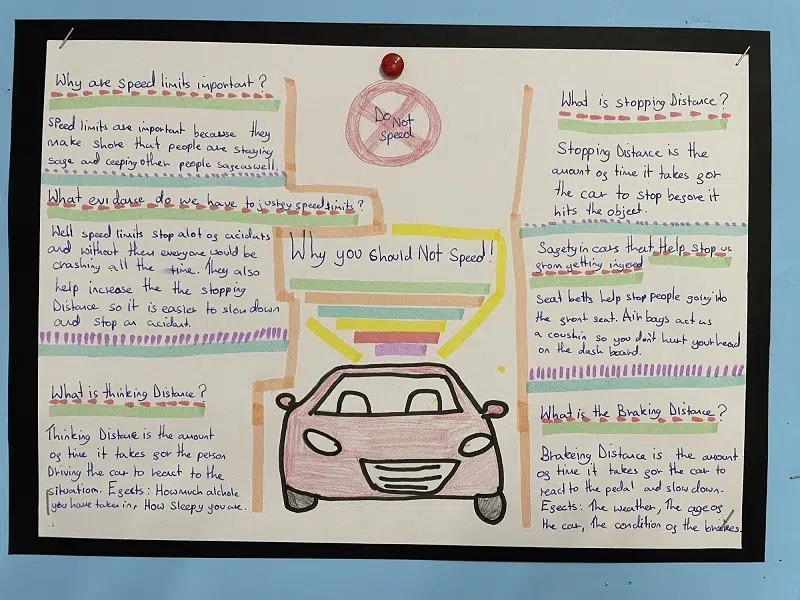 Why are speed limits important?
Speed limits are important because they
make shore that people are staying
sage and ceeping other people sage as well.
What evidance do we have to justgy speed limits?
Well speed limits stop alot og acidants
and without them everyone would be
crashing all the time. They also
help increase the the stopping
Distance so it is easier to slow down
and stop an acidant.
What is thinking Distance?
Thinking Distance is the amount
og time it takes gor the person
Driving the car to react to the
situation. Egects: How much alchole
you have taken in, How sleepy you are.
Do Not
Speed
Why you should Not Speed!
What is stopping Distance?
Stopping Distance is the
amount og time it takes gor
the car to stop begore it
hits the object.
Sagety in cars that Help stop us
grom getting ingered
Seat belts help stop people going into
the gront seat. Air bags act as
a coushin so you don't hurt your head
on the dash board.
What is the Braking Distance?
Brakeing Distance is the amount
og time it takes gor the car to
react to the pedal and slow down.
Egects: The weather, The age og
the car, The condition og the brakes.